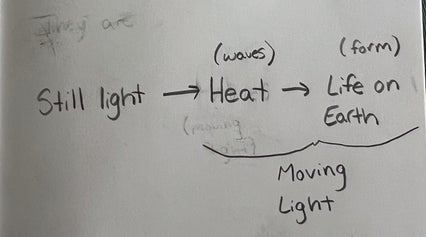 (waves) (form)
Still light → Heat → Life on
Earth
(moving
Moving
Light